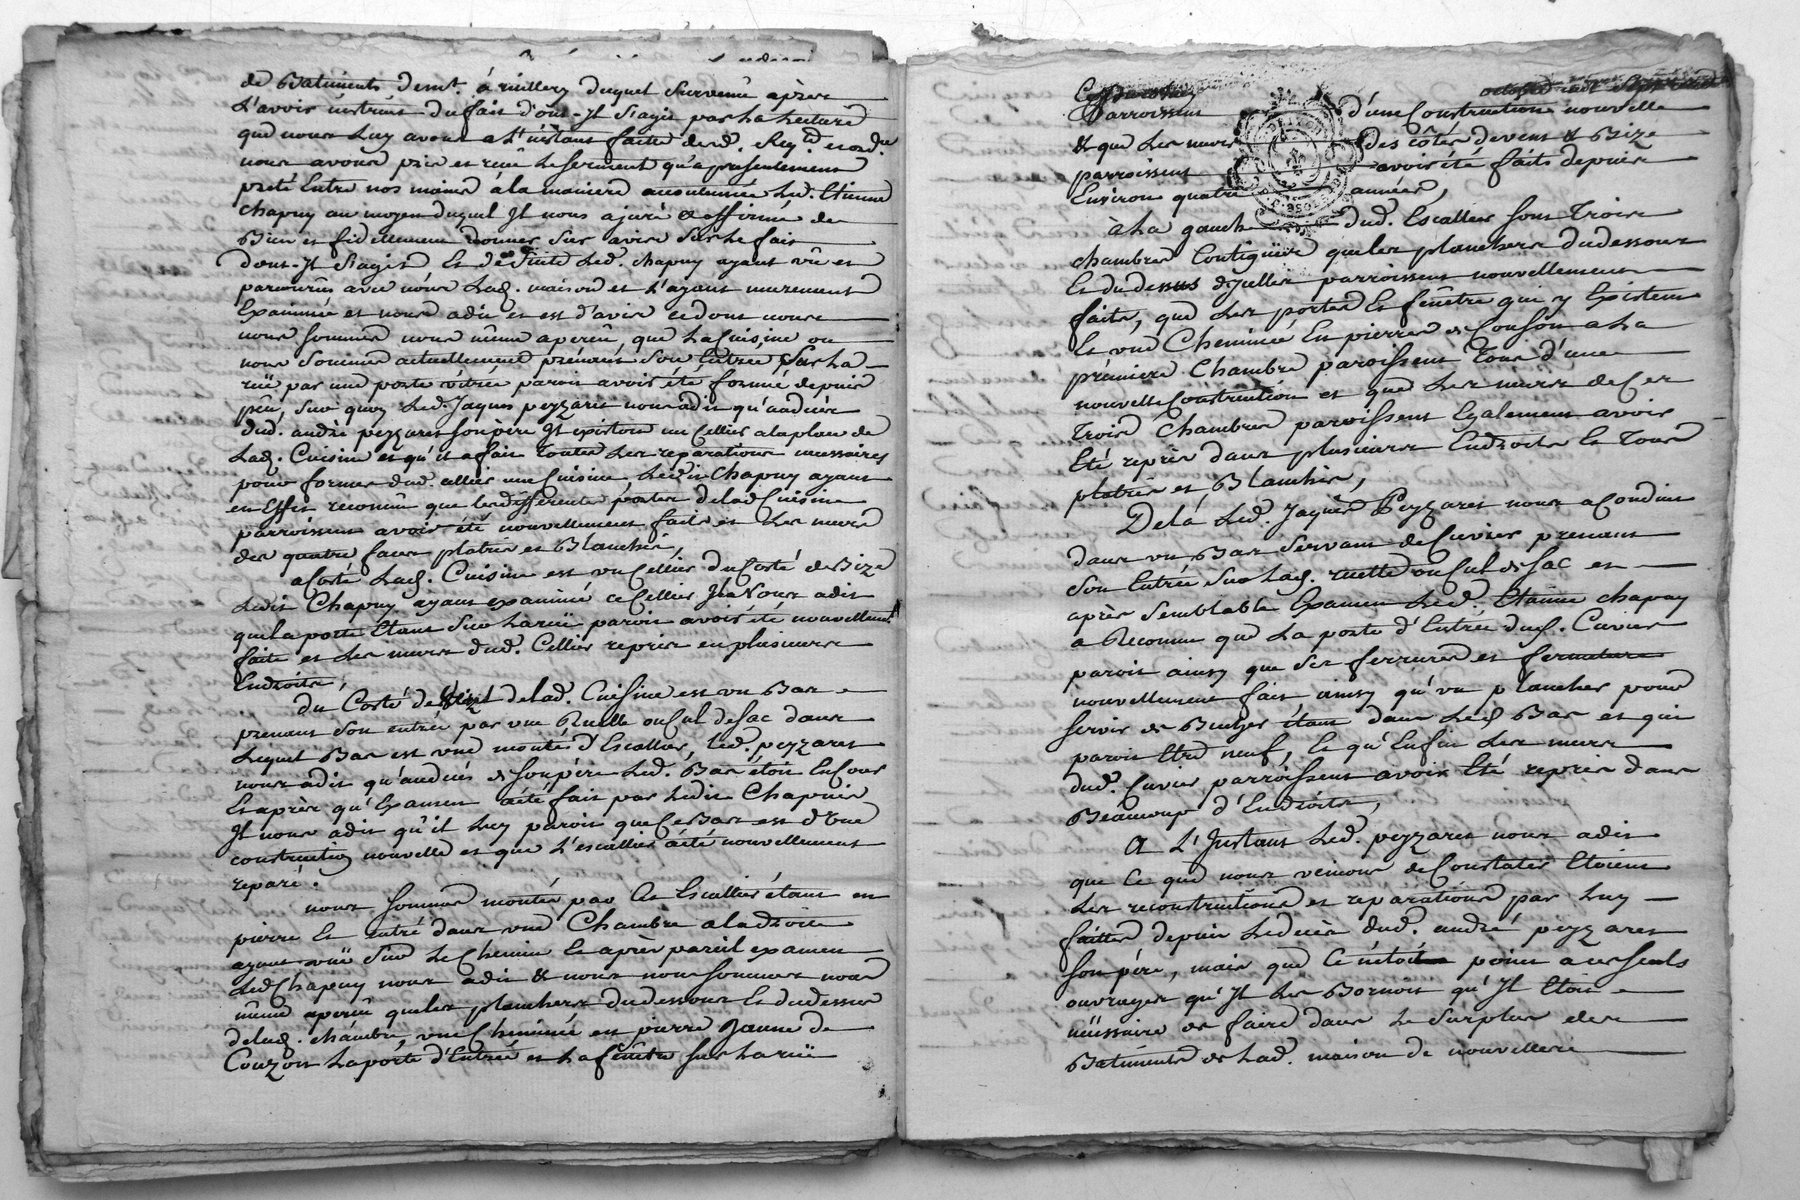 de Batiments dem.t á millery duquel Survenu après
L'avoir instruit du fait dont Jt S'agit par La Lecture
que nous Luy avons a L'instant faitte desd. Req.te et ord.ce
nous avons pris et reçu Le serment qu'a presentement
preté Entre nos mains á la maniere accoutumée Led. Etienne
chapuy au moyen duquel Jt nous a juré & affirmé de
Bien et fidellement donner Son avis Sur Le fait
dont Jt S'agit Et de Suite Led. chapuy ayant vû et
parcourus avec nous Lad. maison et L'ayant murement
Examinée et nous a dit et est d'avis ce dont nous
nous sommes nous même aperçu, que La Cuisine ou
nous Sommes actuellement prenant Son Entrée Sur La
rüe par une porte vitrée paroit avoir été formée depuis
peu, sur quoy Led. Jaques peyzaret nous a dit qu'au décès
dud. andré peyzaret son père Jt existoit un Cellier a la place de
Lad. Cuisine et qu'il a fait toutes Les reparations necessaires
pour former dud. cellier une Cuisine, Led. Chapuy ayant
en Effet reconnû que les differentes portes de lad. Cuisine
parroissent avoir été nouvellement faits et Les murs
des quatre faces platrés et Blanchis,
a Coté Lad. Cuisine est un Cellier du Costé de Bize
Ledit Chapuy ayant examiné ce Cellier Jl a Nous a dit
que la porte Etant Sur La rüe paroit avoir été nouvellem.t
faite et Les murs dud. Cellier repris en plusieurs
Endroits,
du Costé de de lad. Cuisine est un Bas
prenant Son entrée par une Ruelle ou Cul de Sac dans
Lequel Bas est une montée d'Escallier, led. peyzaret
nous a dit qu'au decés de son père Led. Bas étoit En Cour
Et après qu'Examen a été fait par Ledit Chapuis
Jt nous a dit qu'il Luy paroit que Ce Bas est d'une
construction nouvelle et que L'escallier a été nouvellement
reparé.
nous sommes montés par Cet Escallier étant en
pierre Et entré dans une Chambre a la droite
ayant vüe Sur Le Chemin Et après pareil examen
Led. Chapuy nous a dit & nous nous sommes nous
même aperçu que les planchers du dessous Et du dessus
de lad. chambre, une Cheminée en pierre Jaune de
Couzon La porte d'Entrée et La fenêtre Sur La rüe
parroissent d'une Construction nouvelle
& que Les murs Des côtés de vent & Bize
parroissent avoir été faits depuis
Environ quatre années,
à La gauche dud. Escallier sont Trois
chambres Contigües que les planchers du dessous
Et du dessus d'jcelles parroissent nouvellement
faits, que Les portes Et fenêtre qui y Existent
Et une Cheminée En pierres de Couson a La
premiere Chambre paroissent Tous d'une
nouvelle Construction et que Les murs de Ces
trois Chambres paroissent Egalement avoir
Eté repris dans plusieurs Endroits Et Tous
platrés et Blanchis,
De la Led. Jaques Peyzaret nous a Conduit
dans un Bas Servant de Cuvier prenant
Son Entrée Sur Lad. ruette ou Cul de Sac et
après Semblable Examen Led. Etienne chapuy
a Reconnu que La porte d'Entrée dud. Cuvier
paroit ainsy que Ses ferrures et fermeture
nouvellement fait ainsy qu'un plancher pour
Servir de Bucher étant dans Led. Bas et qui
paroit Etre neuf, Et qu'Enfin Les murs
dud. Cuvier parroissent avoir Eté repris dans
Beaucoup d'Endroits,
A L'Instant Led. peyzaret nous a dit
que Ce que nous venions de Constater Etoient
Les reconstructions et reparations par Luy
faittes depuis Le décès dud. andré peyzaret
Son père, mais que Ce n'étoit point a ces seuls
ouvrages qu'Jt Les Bornoit qu'Jt Etoit
necessaire de faire dans Le Surplus des
Batiments de Lad. maison de nouvelles